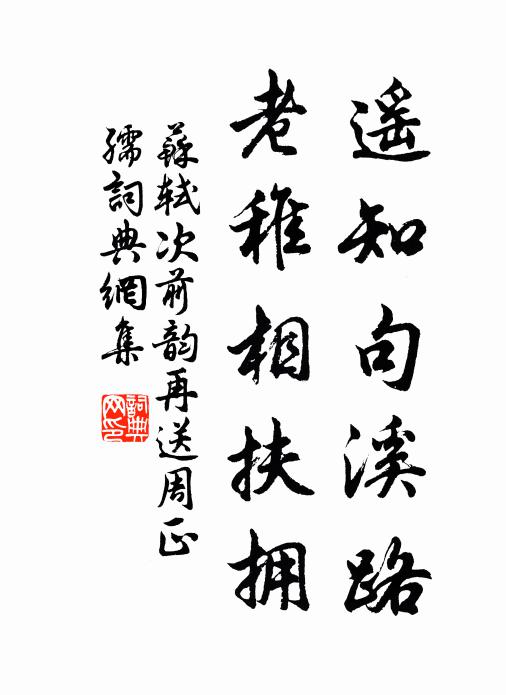 遥知句溪路
老稚相扶拥
蘇軾次前韵再送周正
孺詞典網集
詞典网印